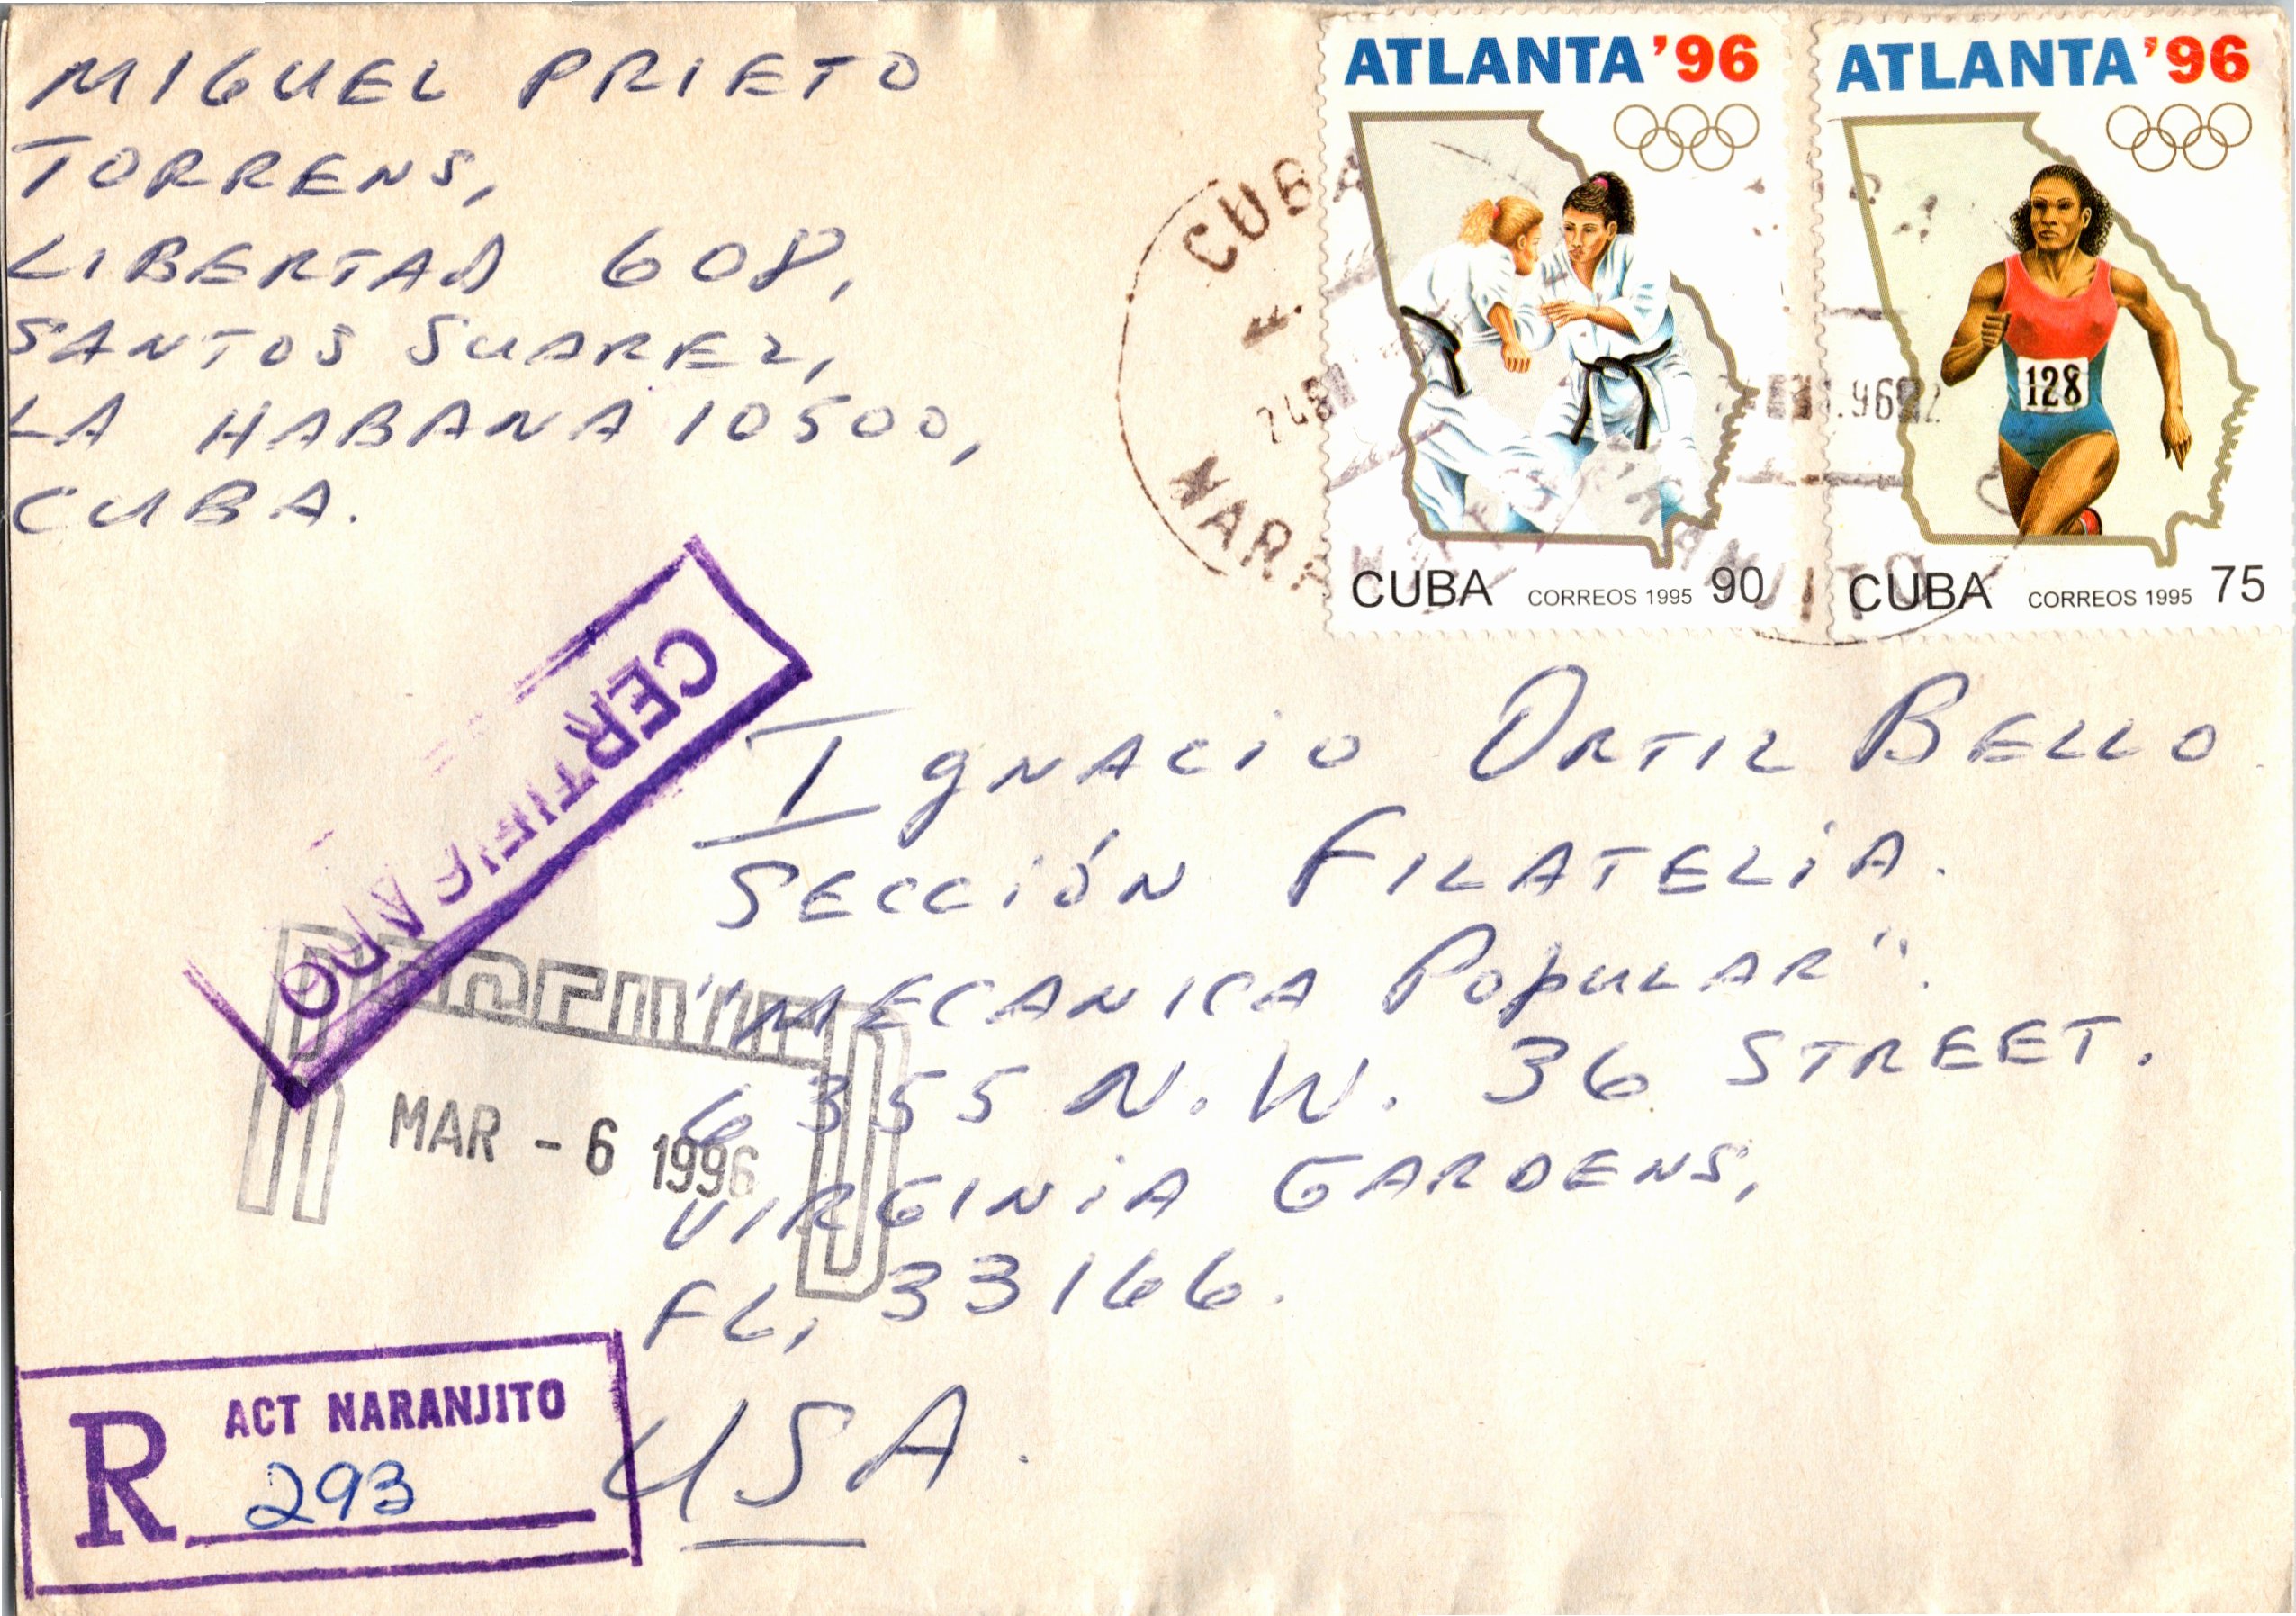 MIGUEL PRIETO
TORRENS,
LIBERTAD 608,
SANTOS SUAREZ,
LA HABANA 10500,
CUBA.
ATLANTA '96
CUBA CORREOS 1995 90
ATLANTA '96
128
CUBA CORREOS 1995 75
CUBA
.96
CERTIFICADO
Ignacio Ortiz Bello
SECCIÓN FILATELIA.
"MECANICA Popular".
6355 N.W. 36 STREET.
VIRGINIA GARDENS,
FL, 33166.
USA.
MAR - 6 1996
R ACT NARANJITO
293